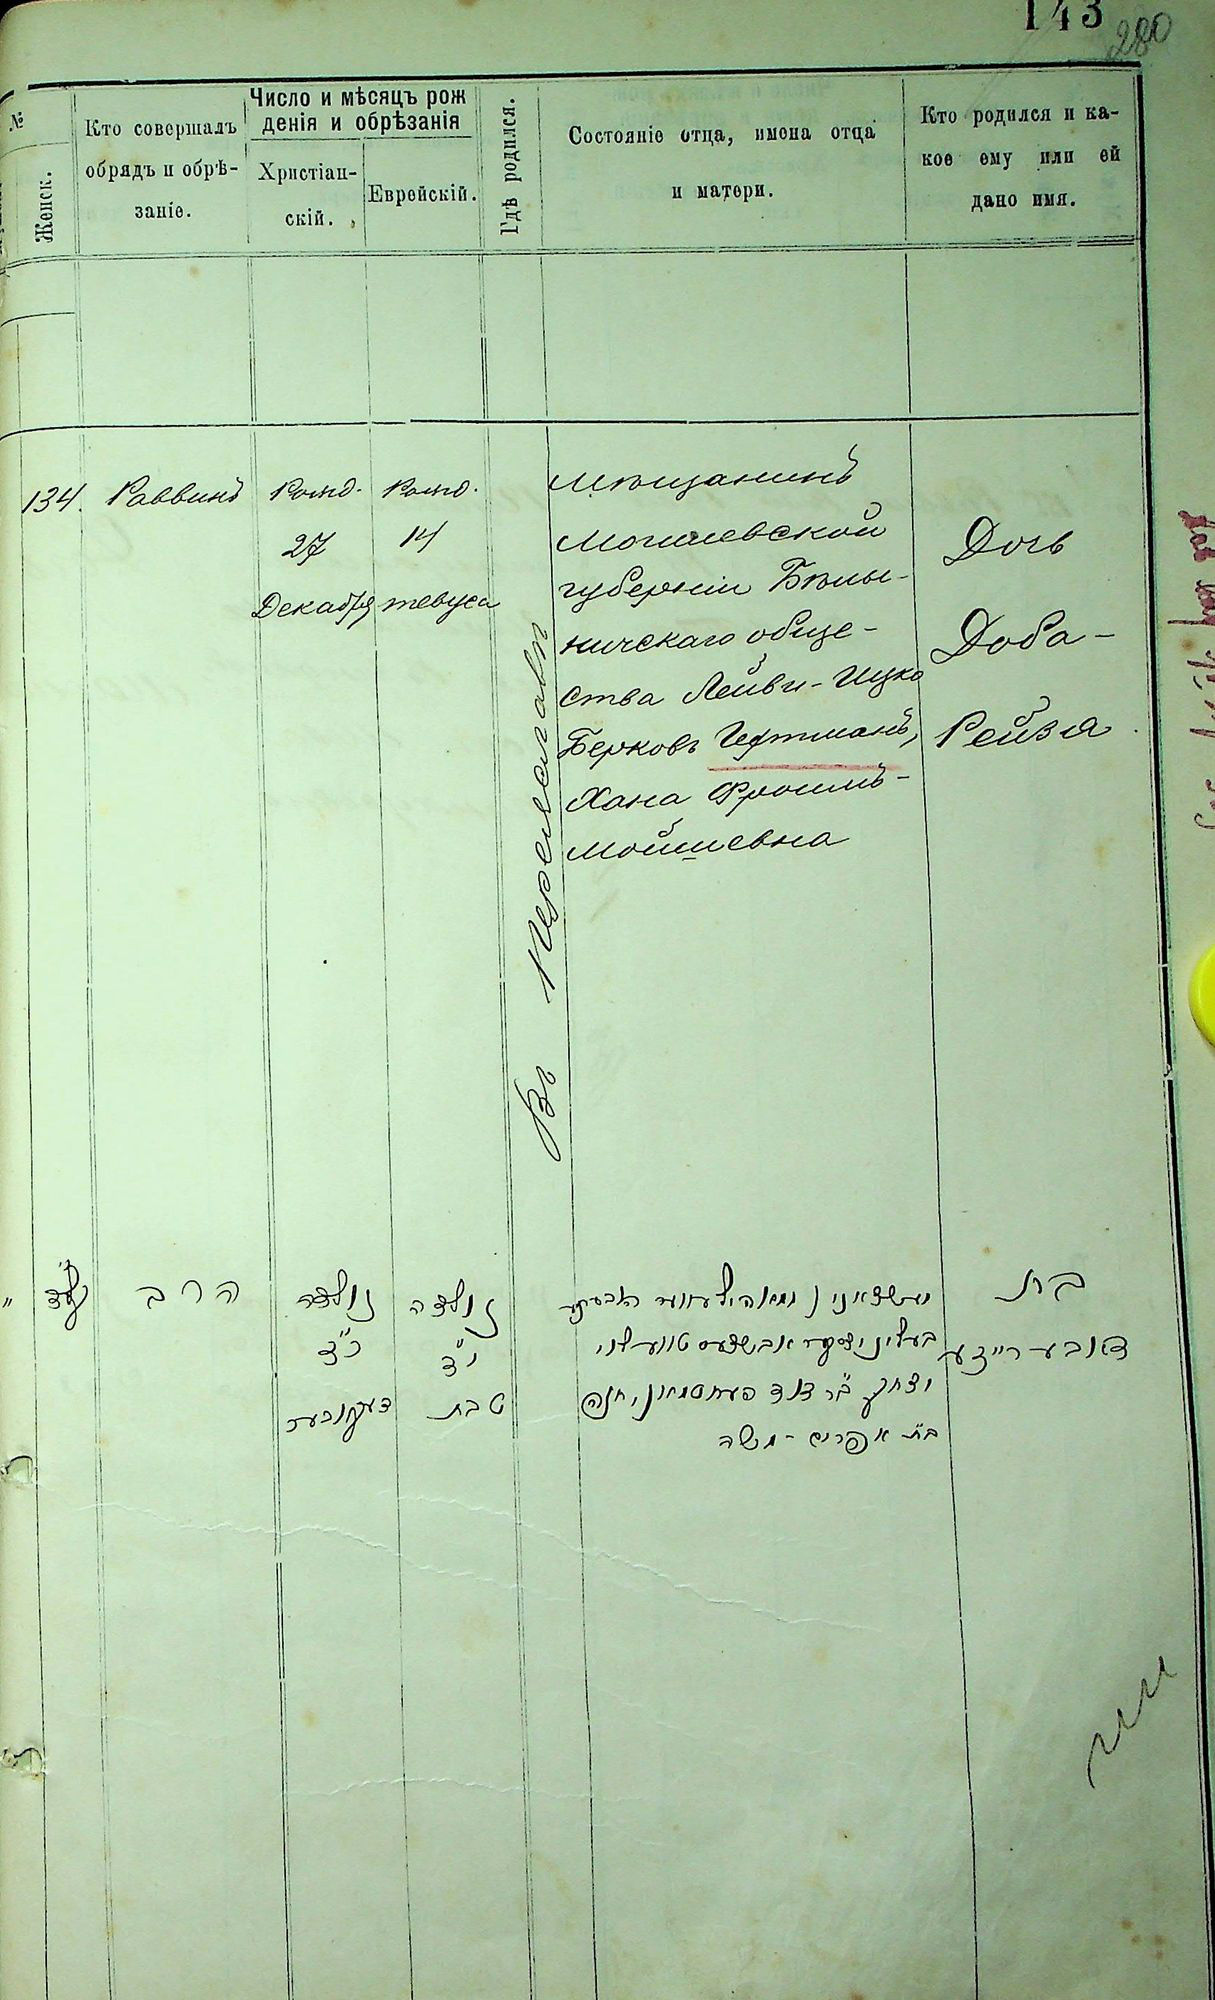 143
280
№
Женск.
Кто совершалъ
обрядъ и обрѣ-
заніе.
Число и мѣсяцъ рож
денія и обрѣзанія
Христіан-
скій.
Еврейскій.
Гдѣ родился.
Состояніе отца, имена отца
и матери.
Кто родился и ка-
кое ему или ей
дано имя.
134.
Раввинъ
Рожд.
27
Декабря
Рожд.
14
тевуса
Въ Переяславѣ
Мѣщанинъ
Могилевской
губерніи Бѣлы-
ничскаго обще-
ства Лейви-Ицко
Берковъ
Хана Фроимъ-
Мойшевна
Дочь
Доба-
Рейзя
קלד
הרב
נולדה
כ"ד
דעקאבער
נולדה
י"ד
טבת
יצחק ב"ר
חנה
בת אפרים - משה
בת
דאבע רייזע